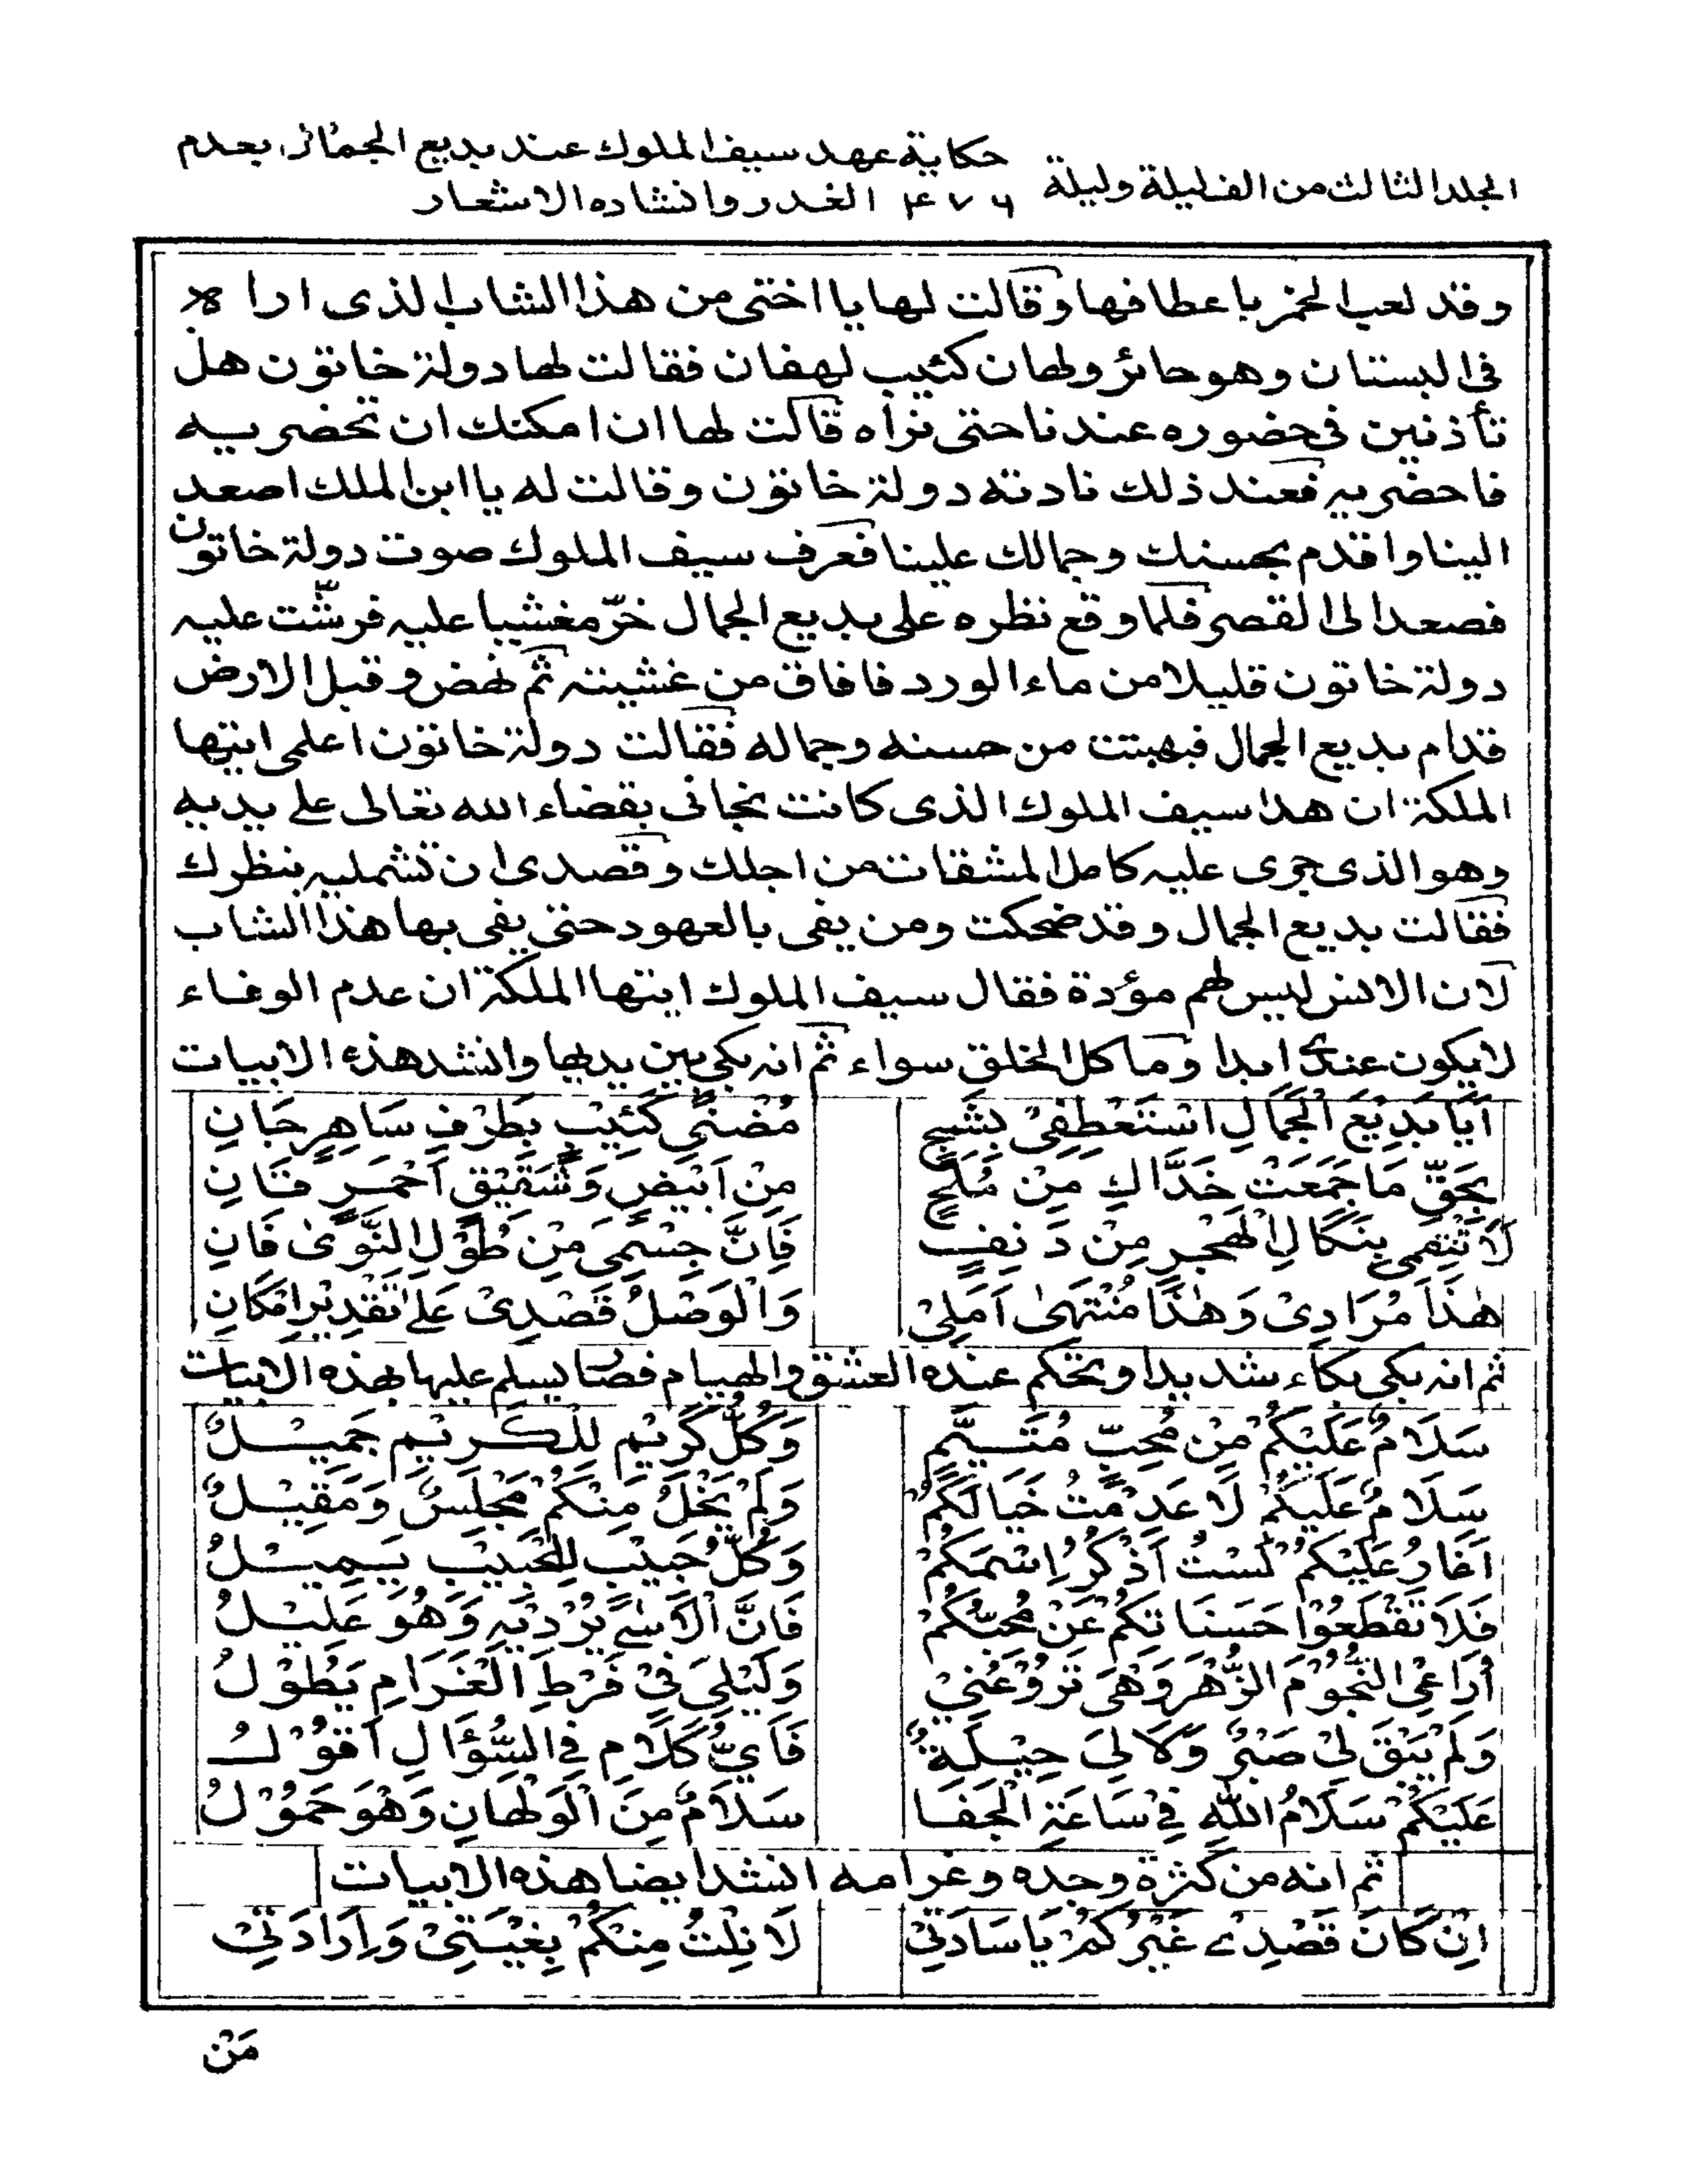 حكاية عهد سيف الملوك عند بديع الجمال بعدم
المجلد الثالث من الف ليلة وليلة ٤٧٦ الغدر وانشاده الاشعار
وقد لعب الخمر باعطافها وقالت لها يا اختى من هذا الشاب الذى اراه
فى البستان وهو حائر ولهان كئيب لهفان فقالت لها دولة خاتون هل
تأذنين فى حضوره عندنا حتى نراه قالت لها ان امكنك ان تحضريه
فاحضريه فعند ذلك نادته دولة خاتون وقالت له يا ابن الملك اصعد
الينا واقدم بحسنك وجمالك علينا فعرف سيف الملوك صوت دولة خاتون
فصعد الى القصر فلما وقع نظره على بديع الجمال خرّ مغشيا عليه فرشّت عليه
دولة خاتون قليلا من ماء الورد فافاق من غشيته ثم نهض وقبل الارض
قدام بديع الجمال فبهتت من حسنه وجماله فقالت دولة خاتون اعلمى ايتها
الملكة ان هذا سيف الملوك الذى كانت نجاتى بقضاء الله تعالى على يديه
وهو الذى جرى عليه كامل المشقات من اجلك وقصدى ان تشمليه بنظرك
فقالت بديع الجمال وقد ضحكت ومن يفى بالعهود حتى يفى بها هذا الشاب
لان الانس ليس لهم مؤدة فقال سيف الملوك ايتها الملكة ان عدم الوفاء
لا يكون عندى ابدا وما كل الخلق سواء ثم انه بكى بين يديها وانشد هذه الابيات
اَيَا بَدِيْعَ الْجَمَالِ اسْتَعْطِفِىْ بِشَجٍ مُضْنًى كَئِيْبٍ بِطَرْفٍ سَاهِرٍ جَانِ
بِحَقِّ مَا جَمَعَتْ خَدَّاكِ مِنْ مُلَحٍ مِنْ اَبْيَضٍ وَشَقِيْقٍ اَحْمَرٍ قَانِ
لَا تَنْقِمِى بِنَكَالِ الْهَجْرِ مِنْ دَنِفٍ فَاِنَّ جِسْمِى مِنْ طُوْلِ النَّوَىٰ فَانِ
هٰذَا مُرَادِىْ وَهٰذَا مُنْتَهَىٰ اَمَلِىْ وَالْوَصْلُ قَصْدِىْ عَلٰى تَقْدِيْرِ اِمْكَانِ
ثم انه بكى بكاء شديدا وتحكم عنده العشق والهيام فصار يسلم عليها بهذه الابيات
سَلَامٌ عَلَيْكُمْ مِنْ مُحِبٍّ مُتَيَّمٍ وَكُلُّ كَرِيْمٍ لِلْكَرِيْمِ جَمِيْلٌ
سَلَامٌ عَلَيْكُمْ لَا عَدِمْتُ خَيَالَكُمْ وَلَمْ يَخْلُ مِنْكُمْ مَجْلِسٌ وَمَقِيْلٌ
اَغَارُ عَلَيْكُمْ لَسْتُ اَذْكُرُ اِسْمَكُمْ وَكُلُّ حَبِيْبٍ لِلْحَبِيْبِ يَمِيْلُ
فَلَا تَقْطَعُوْا حَسَنَاتِكُمْ عَنْ مُحِبِّكُمْ فَاِنَّ الْاَسٰى يُرْدِيْهِ وَهْوَ عَلِيْلُ
اُرَاعِى النُّجُوْمَ الزُّهْرَ وَهْىَ تَرُوْعُنِىْ وَلَيْلِىَ فِىْ فَرْطِ الْغَرَامِ يَطُوْلُ
وَلَمْ يَبْقَ لِىْ صَبْرٌ وَلَا لِىَ حِيْلَةٌ فَاَىُّ كَلَامٍ فِى السُّؤَالِ اَقُوْلُ
عَلَيْكُمْ سَلَامُ اللهِ فِىْ سَاعَةِ الْجَفَا سَلَامٌ مِنَ الْوَلْهَانِ وَهْوَ حَمُوْلُ
ثم انه من كثرة وجده وغرامه انشد ايضا هذه الابيات
اِنْ كَانَ قَصْدِى غَيْرُكُمْ يَا سَادَتِىْ لَا نِلْتُ مِنْكُمْ بِغْيَتِىْ وَاِرَادَتِىْ
مَنْ